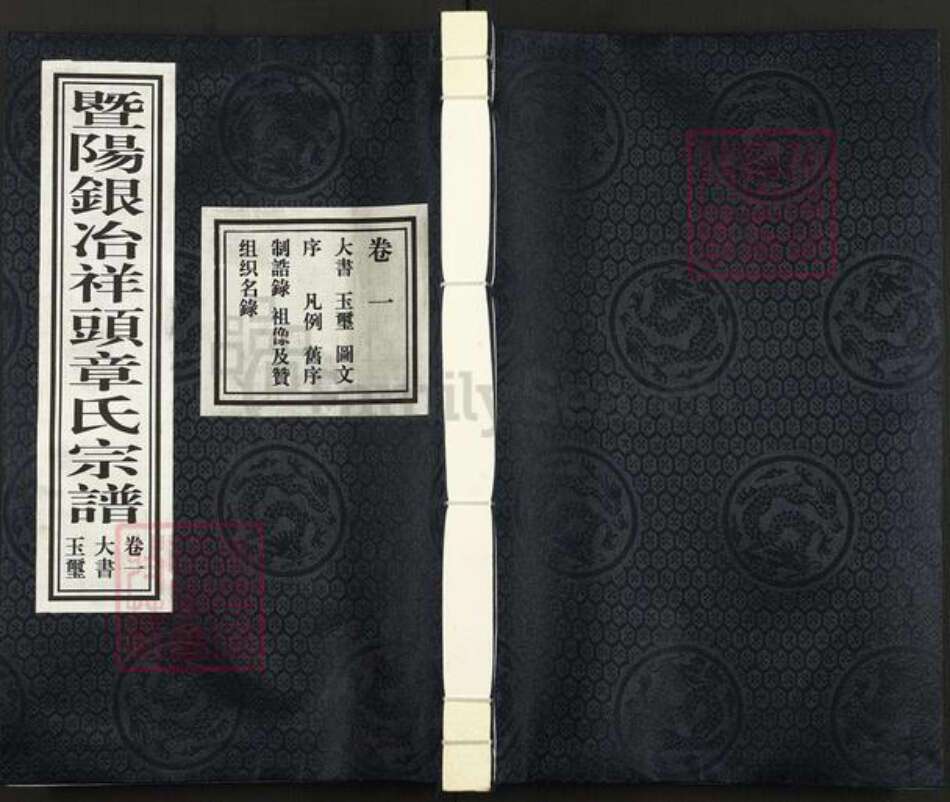 暨陽銀冶祥頭章氏宗譜
卷一
大書
玉璽
卷一
大書 玉璽 圖文
序 凡例 舊序
制誥錄 祖像及贊
组织名錄